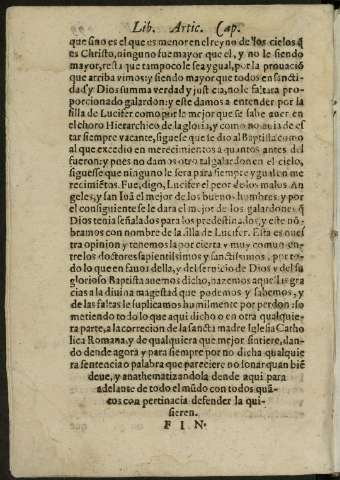 Lib. Artic. Cap.
que sino es el que es menor en el reyno de los cielos q̃
es Christo, ninguno fue mayor que el, y no le siendo
mayor, resta que tampoco le sea ygual, por la prouació
que arriba vimos: y siendo mayor que todos en sancti-
dad, y Dios summa verdad y justicia, no le faltara pro-
porcionado galardon: y este damos a entender por la
silla de Lucifer como por le mejor que se sabe auer en
el choro Hierarchico de la gloria, y como no auia de es
tar siempre vacante, siguese que se dio al Baptista como
al que excedio en merecimientos a quantos antes del
fueron: y pues no damos otro tal galardon en el cielo,
siguesse que ninguno le sera para siempre ygual en me
recimiẽtos. Fue, digo, Lucifer el peor de los malos An
geles, y san Iuã el mejor de los buenos hombres, y por
el consiguiente se le dara el mejor de los galardones q̃
Dios tenia señalados para los predestinados, y este nõ-
bramos con nombre de la silla de Lucifer. Esta es nues
tra opinion y tenemosla por cierta y muy comun en-
tre los doctores sapientissimos y sanctissimos, por to-
do lo que en fauor della, y del seruicio de Dios y del su
glorioso Baptista auemos dicho, hazemos aquellas gra
cias a la diuina magestad que podemos y sabemos, y
de las faltas le suplicamos humilmente por perdon: so
metiendo todo lo que aqui dicho o en otra qualquie
ra parte, a la correcion de la sancta madre Iglesia Catho
lica Romana, y de qualquiera que mejor sintiere, dan-
do dende agora y para siempre por no dicha qualquie
ra sentencia o palabra que pareciere no sonar quan biẽ
deue, y anathematizandola dende aqui para
adelante de todo el mũdo con todos quã-
tos con pertinacia defender la qui-
sieren.
F I N.